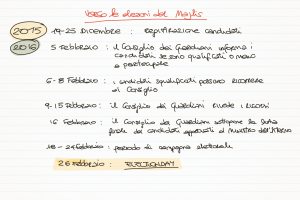 Verso le elezioni del Majlis
2015 19-25 Dicembre : registrazione candidati
2016 5 Febbraio : il Consiglio dei Guardiani informa i
candidati se sono qualificati o meno
a partecipare
6-8 Febbraio : i candidati squalificati possono ricorrere
al Consiglio
9-15 Febbraio : il Consiglio dei Guardiani rivede i ricorsi
16 Febbraio : il Consiglio dei Guardiani sottopone la lista
finale dei candidati approvati al Ministro dell'Interno
18-24 Febbraio : periodo di campagna elettorale
26 Febbraio : ELECTION DAY